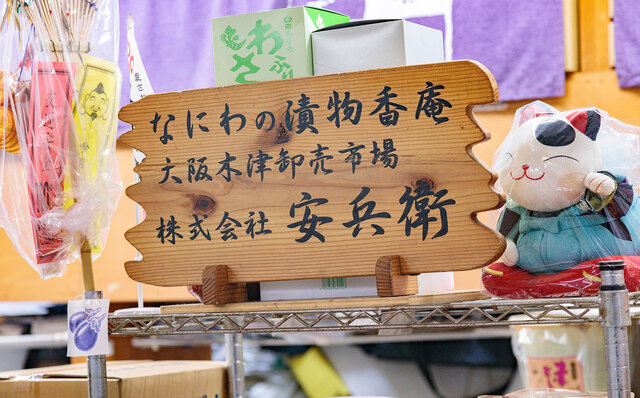 なにわの漬物香庵
大阪木津卸売市場
株式会社 安兵衛
わさ